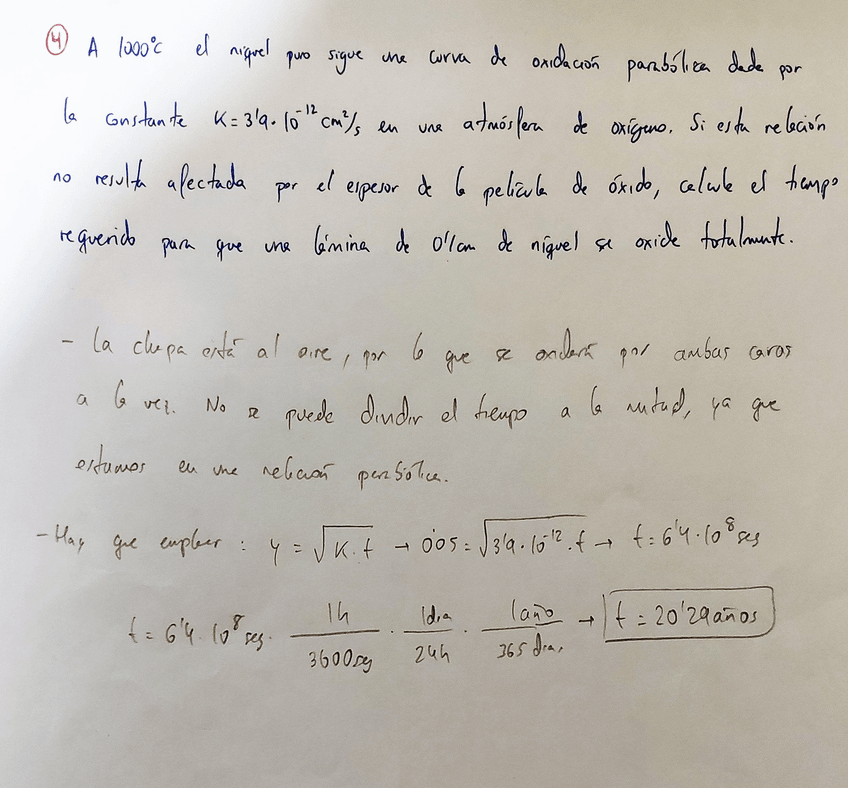 4 A 1000°C el níquel puro sigue una curva de oxidación parabólica dada por
la constante K = 3'9·10⁻¹² cm²/s en una atmósfera de oxígeno. Si esta relación
no resulta afectada por el espesor de la película de óxido, calcule el tiempo
requerido para que una lámina de 0'1cm de níquel se oxide totalmente.
- La chapa está al aire, por lo que se oxidará por ambas caras
a la vez. No se puede dividir el tiempo a la mitad, ya que
estamos en una relación parabólica.
- Hay que emplear : y = √K·t → 0'05 = √3'9·10⁻¹²·t → t = 6'4·10⁸ seg
t = 6'4·10⁸ seg · 1h/3600seg · 1dia/24h · 1año/365 dias → t = 20'29 años